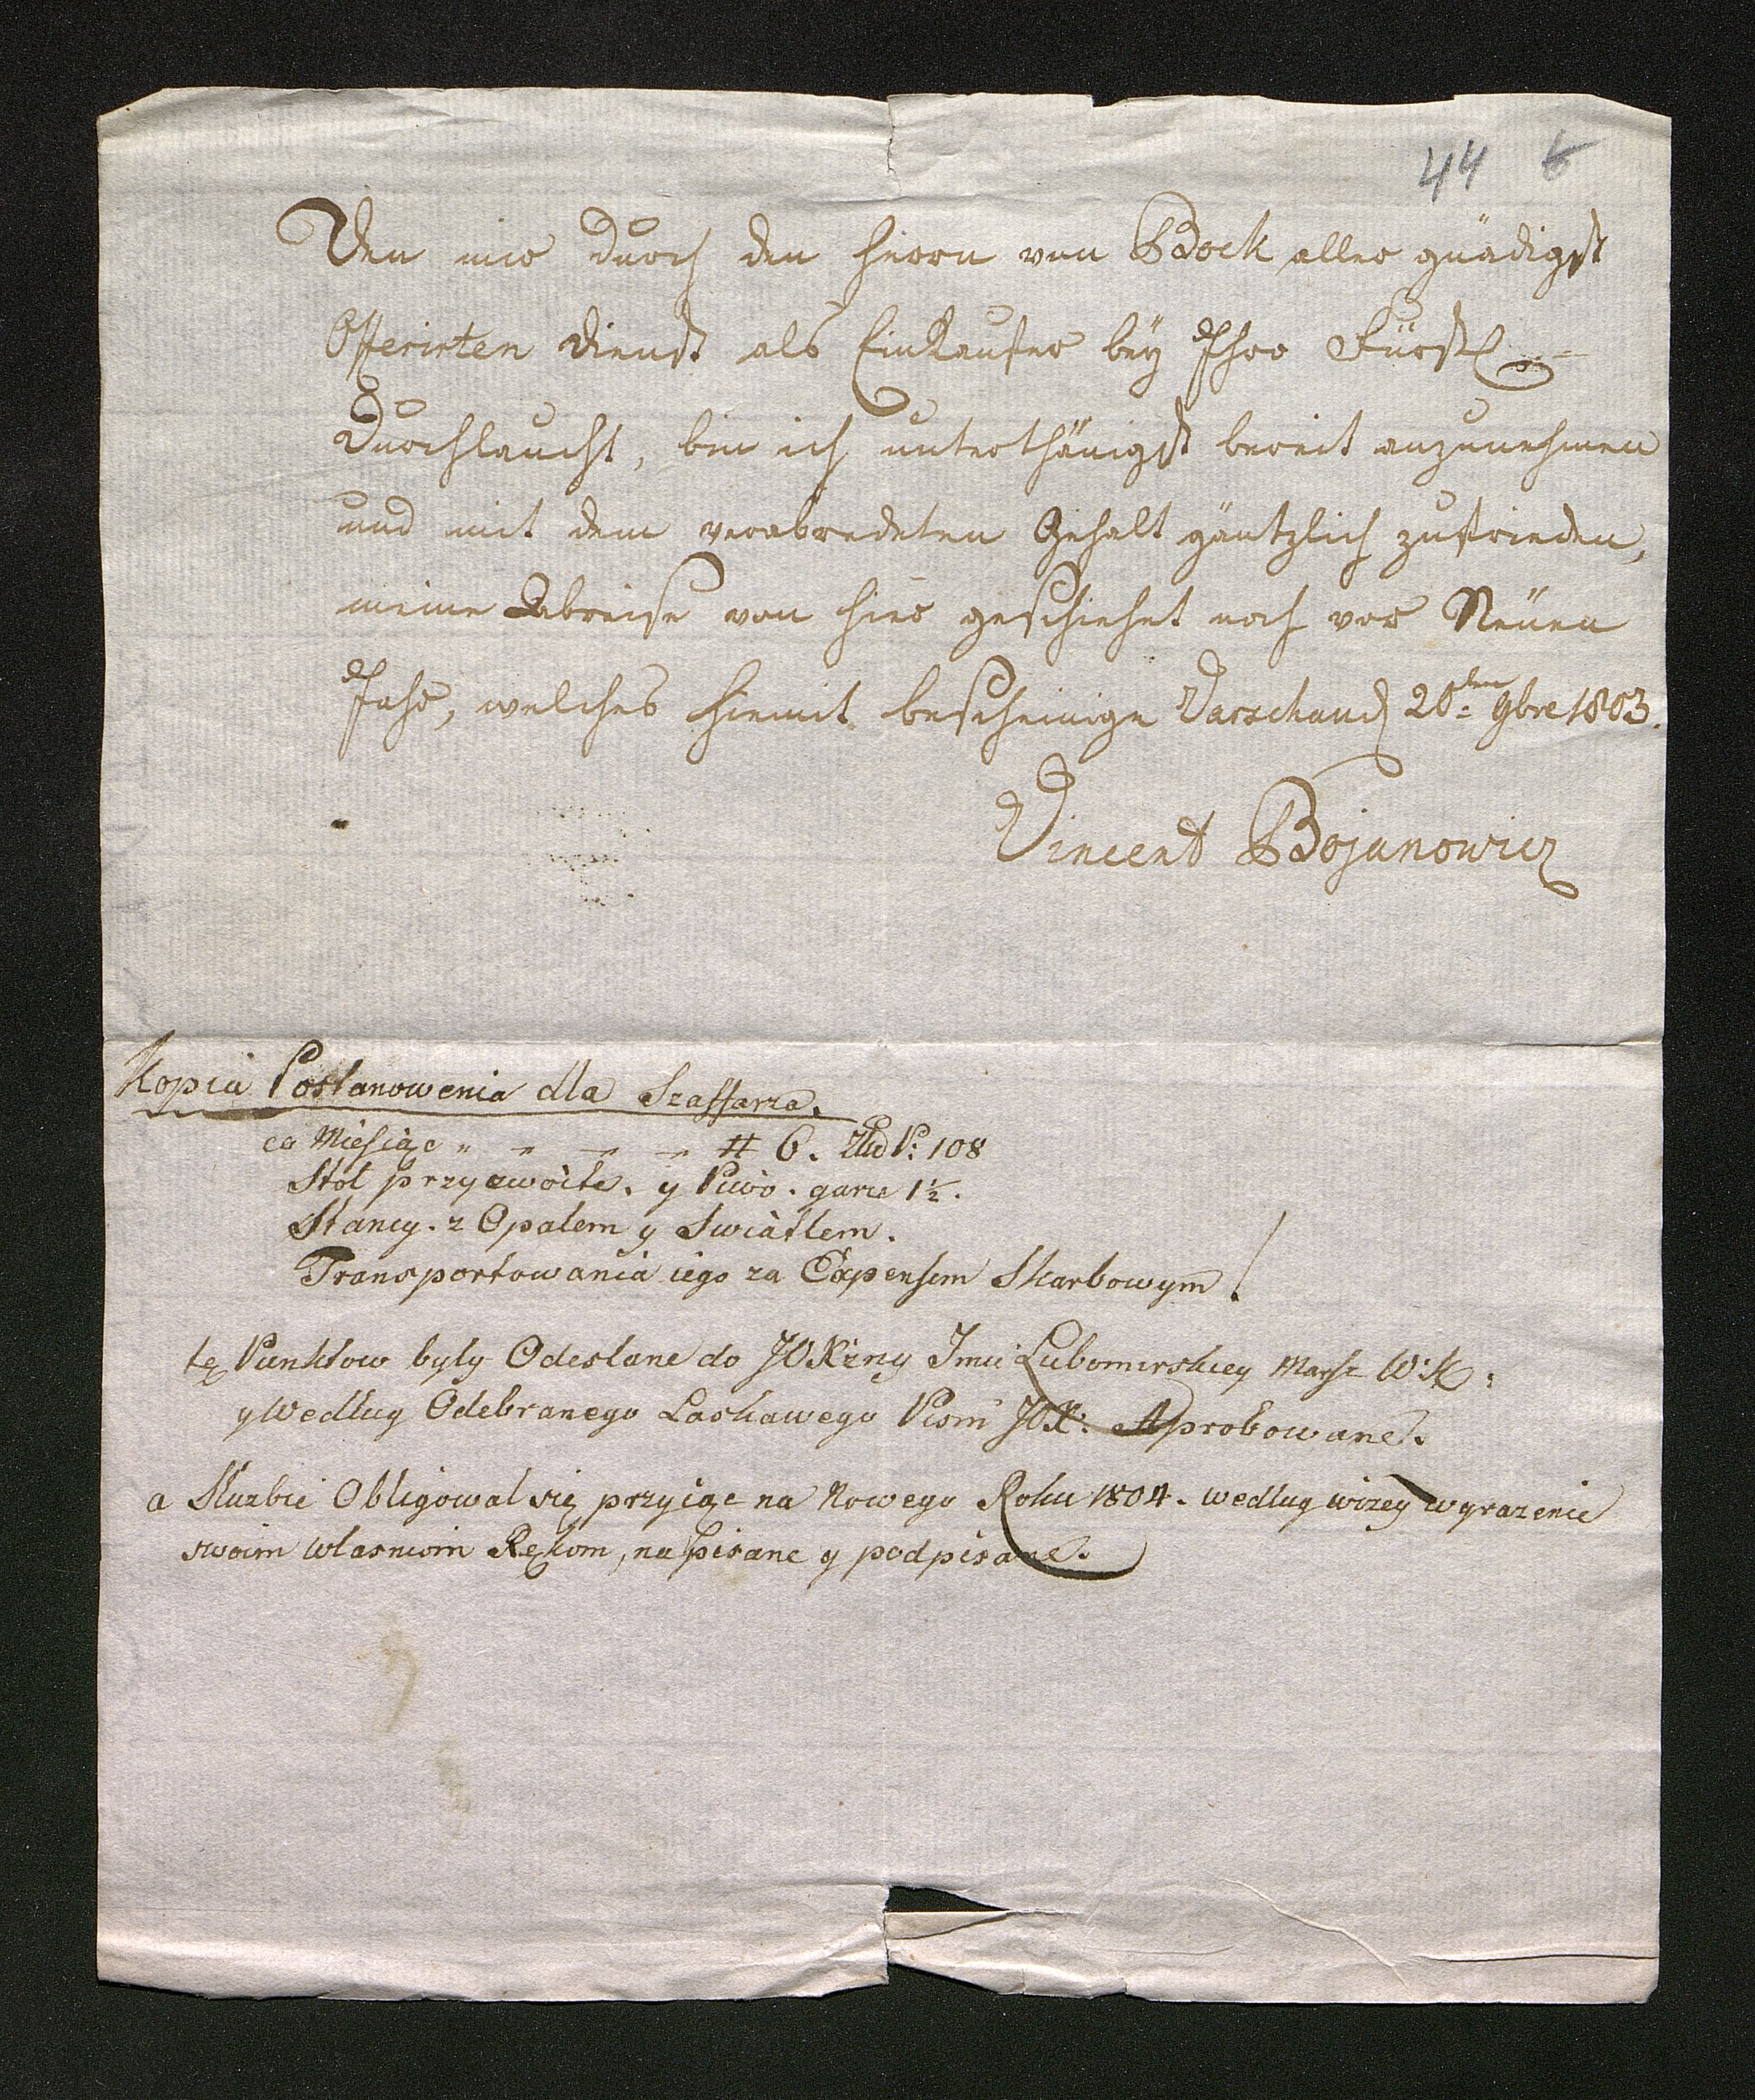 44 6
Den mir durch den Herrn von Bock aller gnädigst
Offerirten Dienst als Einkaufer beÿ Ihro Fürstl
Durchlaucht, bin ich unterthänigst bereit anzunehmen
und mit dem verabredeten Gehalt gäntzlich zufrieden,
meine Abreise von hier geschiehet noch vor Neuen
Jahr, welches hiemit bescheinige Varschau d 20ten 9bre 1803.
Vincent Bojanowicz
Kopia Postanowenia dla Szaffarza.
co Miesiąc " " " " # 6. Zło P: 108
Stół przyzwoite. y Piwo. garce 1½.
Stancy. z Opałem y Swiatłem.
Transportowania iego za Expensem Skarbowym.
tę Punktow były Odesłane do JOKżny Imci Lubomirskiey Marsz W: K:
y Według Odebranego Łaskawego Pism JOK: Aprobowane.
a Służbie Obligował się przyiąc na Nowego Roku 1804. według wizey wyrazenie
swoim własniom Rękom, napisane y podpisane.